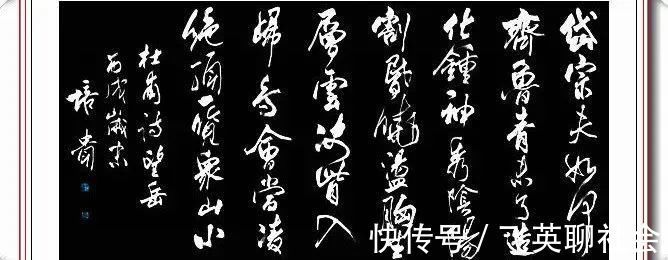 岱宗夫如何
齊魯青未了造
化鍾神秀陰陽
割昏曉盪胸生
層雲決眥入
歸鳥會當凌
絕頂一覽衆山小
杜甫詩望岳
丙戌歲
培
快传号/飞英聊社会